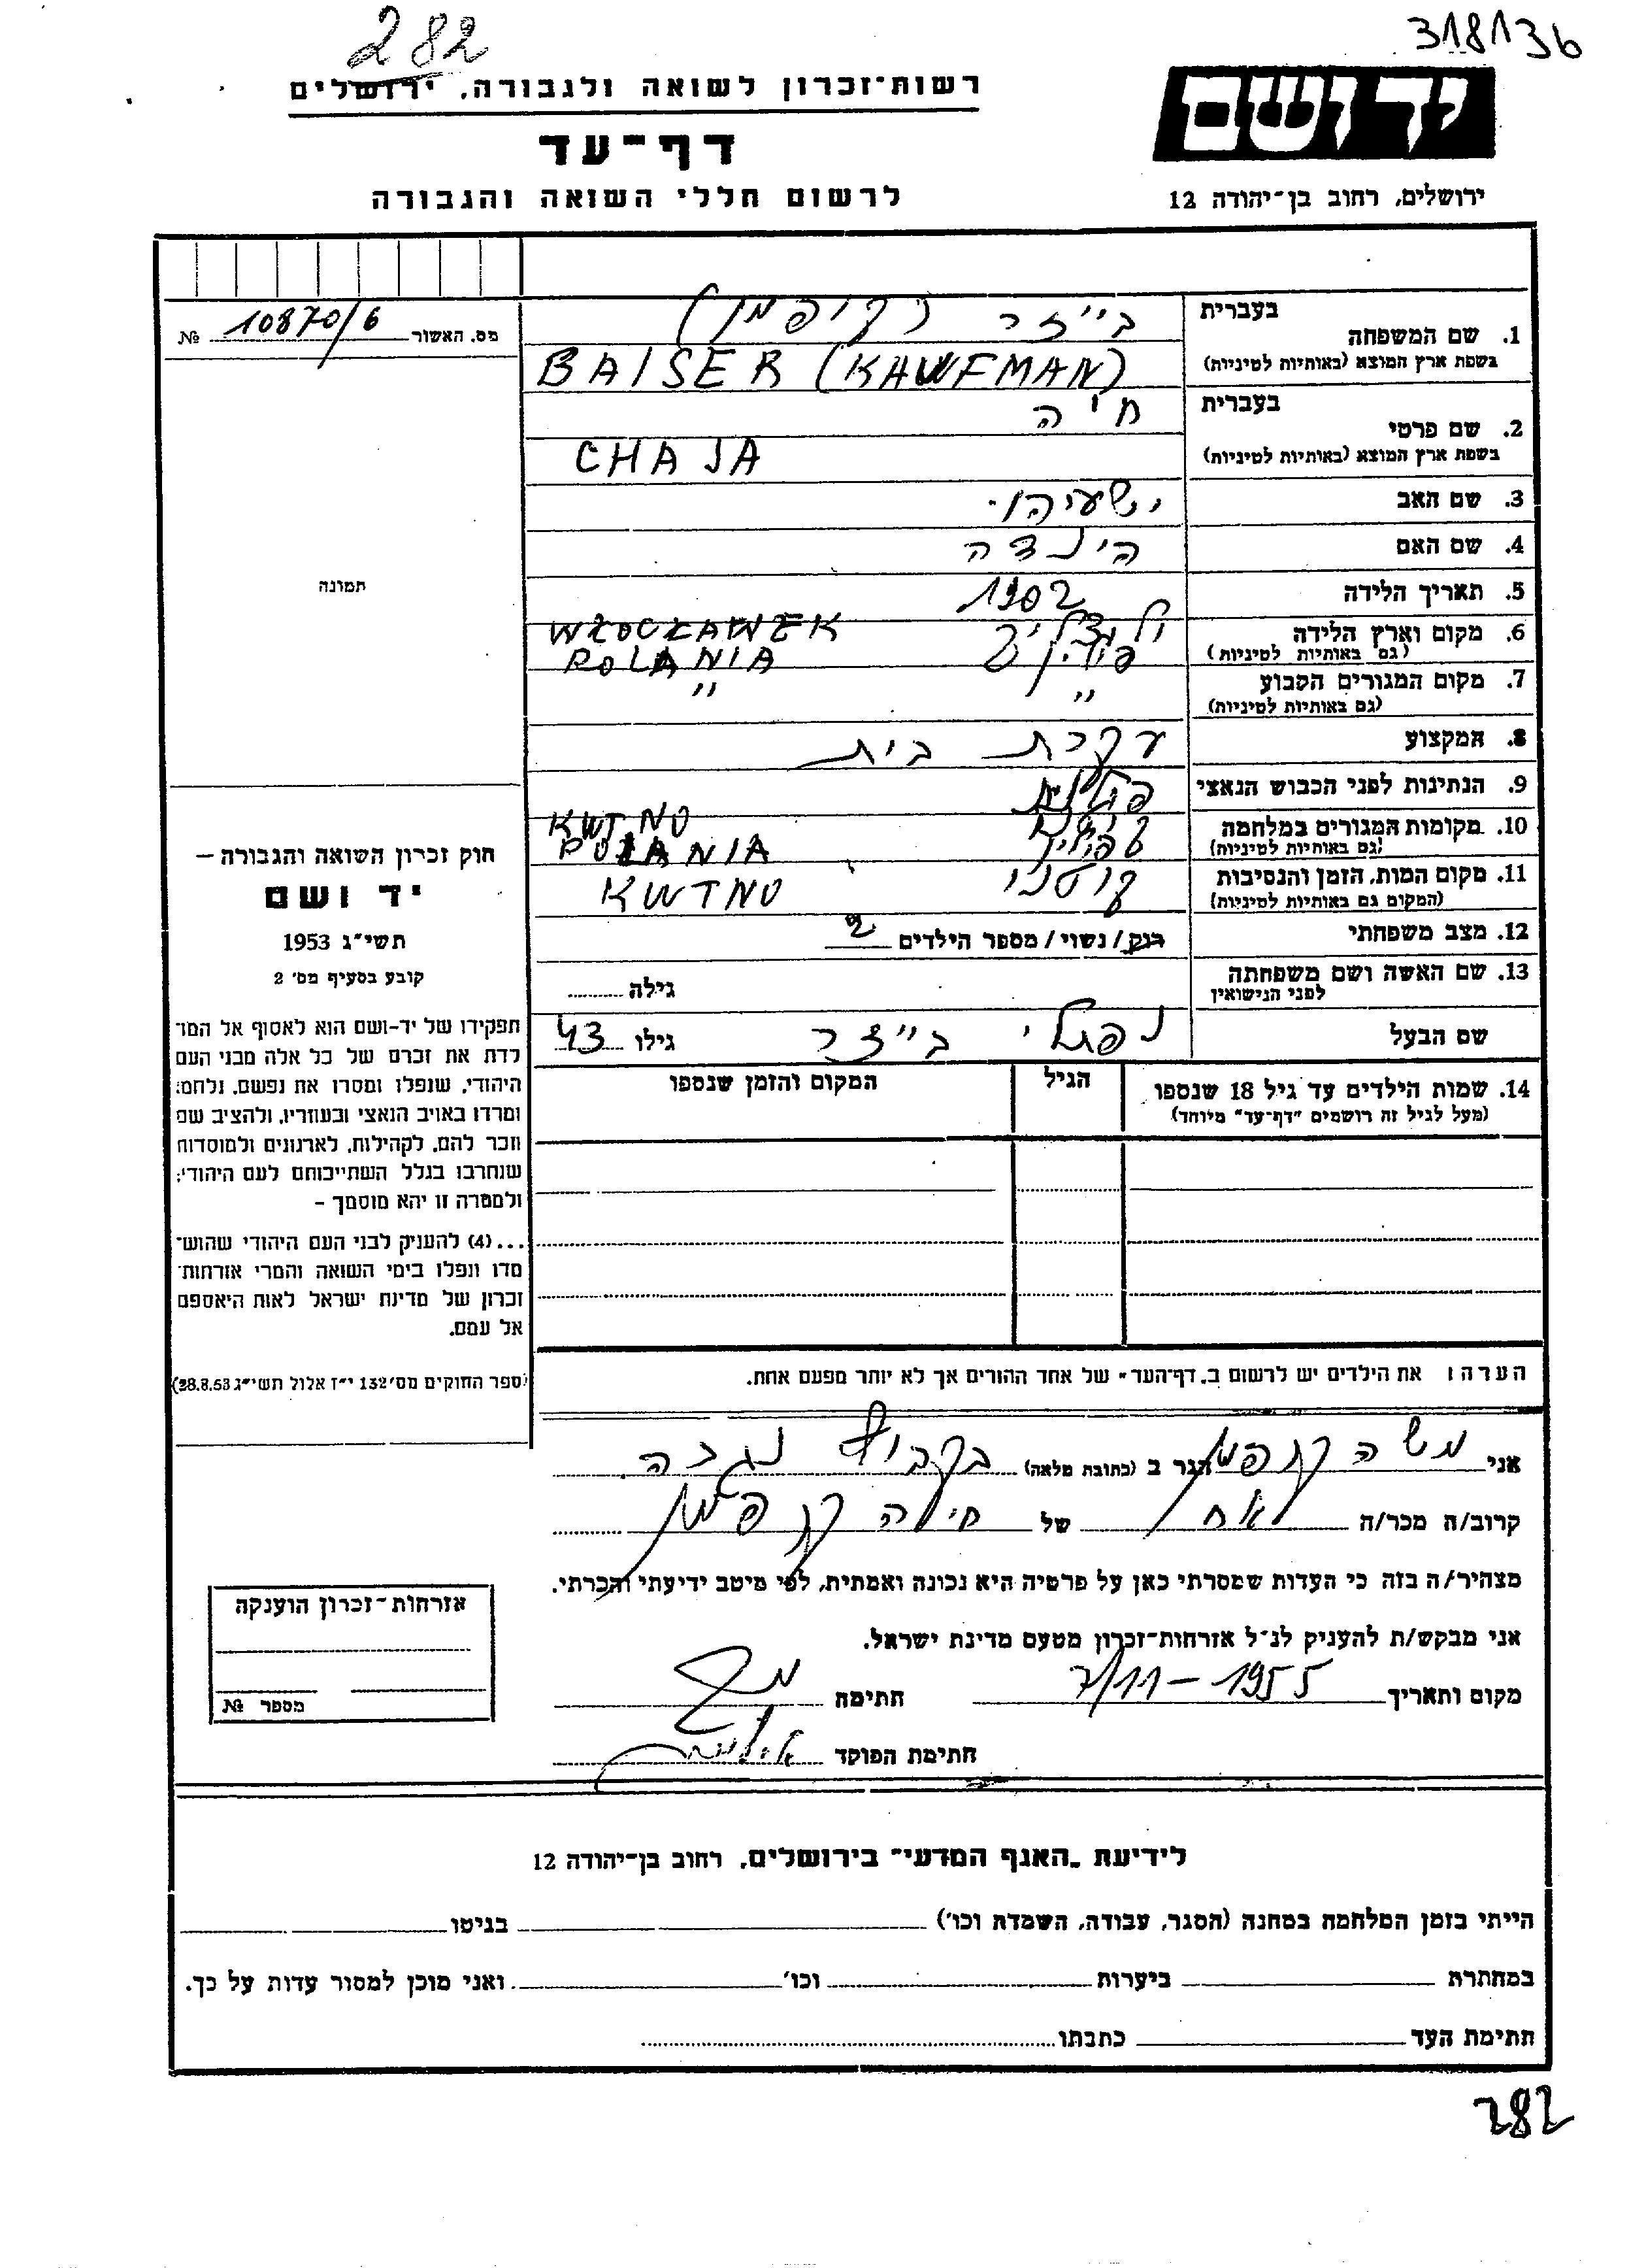 282
318136
רשות־זכרון לשואה ולגבורה, ירושלים
יד ושם
דף־עד
לרשום חללי השואה והגבורה
ירושלים, רחוב בן־יהודה 12
מס. האשור 10870/6 №
1. שם המשפחה
בעברית
בייזר (קופמן)
בשפת ארץ המוצא (באותיות לטיניות)
BAISER (KAWFMAN)
2. שם פרטי
בעברית
חיה
בשפת ארץ המוצא (באותיות לטיניות)
CHAJA
3. שם האב ישעיהו
4. שם האם הינדה
5. תאריך הלידה 1902
6. מקום וארץ הלידה
(גם באותיות לטיניות)
WŁOCŁAWEK
POLANIA
7. מקום המגורים הקבוע " "
(גם באותיות לטיניות)
8. המקצוע עקרת בית
9. הנתינות לפני הכבוש הנאצי
10. מקומות המגורים במלחמה
(גם באותיות לטיניות)
KWTNO
POLANIA
11. מקום המות, הזמן והנסיבות קוטנו KWTNO
(המקום גם באותיות לטיניות)
12. מצב משפחתי רוק/נשוי/מספר הילדים 2
13. שם האשה ושם משפחתה
לפני הנישואין
גילה
שם הבעל נפתלי בייזר גילו 43
14. שמות הילדים עד גיל 18 שנספו
(מעל לגיל זה רושמים "דף־עד" מיוחד)
הגיל
המקום והזמן שנספו
תמונה
חוק זכרון השואה והגבורה —
יד ושם
תשי"ג 1953
קובע בסעיף מס' 2
תפקידו של יד-ושם הוא לאסוף אל המו־
לדת את זכרם של כל אלה מבני העם
היהודי, שנפלו ומסרו את נפשם, נלחמו
ומרדו באויב הנאצי ובעוזריו, ולהציב שם
וזכר להם, לקהילות, לארגונים ולמוסדות
שנחרבו בגלל השתייכותם לעם היהודי;
ולמטרה זו יהא מוסמך –
...(4) להעניק לבני העם היהודי שהוש־
מדו ונפלו בימי השואה והמרי אזרחות־
זכרון של מדינת ישראל לאות היאספם
אל עמם.
(ספר החוקים מס' 132 י"ז אלול תשי"ג 28.8.53)
הערה: את הילדים יש לרשום ב„דף־העד" של אחד ההורים אך לא יותר מפעם אחת.
אני משה קופמן הגר ב (כתובת מלאה) בקבוץ נגבה
קרוב/ה מכר/ה אח של חיה קופמן
מצהיר/ה בזה כי העדות שמסרתי כאן על פרטיה היא נכונה ואמתית, לפי מיטב ידיעתי והכרתי.
אני מבקש/ת להעניק לנ"ל אזרחות־זכרון מטעם מדינת ישראל.
מקום ותאריך 7/11-1955 חתימה
חתימת הפוקד
אזרחות־זכרון הוענקה
מספר №
לידיעת „האגף המדעי" בירושלים, רחוב בן־יהודה 12
הייתי בזמן המלחמה במחנה (הסגר, עבודה, השמדה וכו') בגיטו
במחתרת ביערות וכו' ואני מוכן למסור עדות על כך.
חתימת העד כתבתו
282